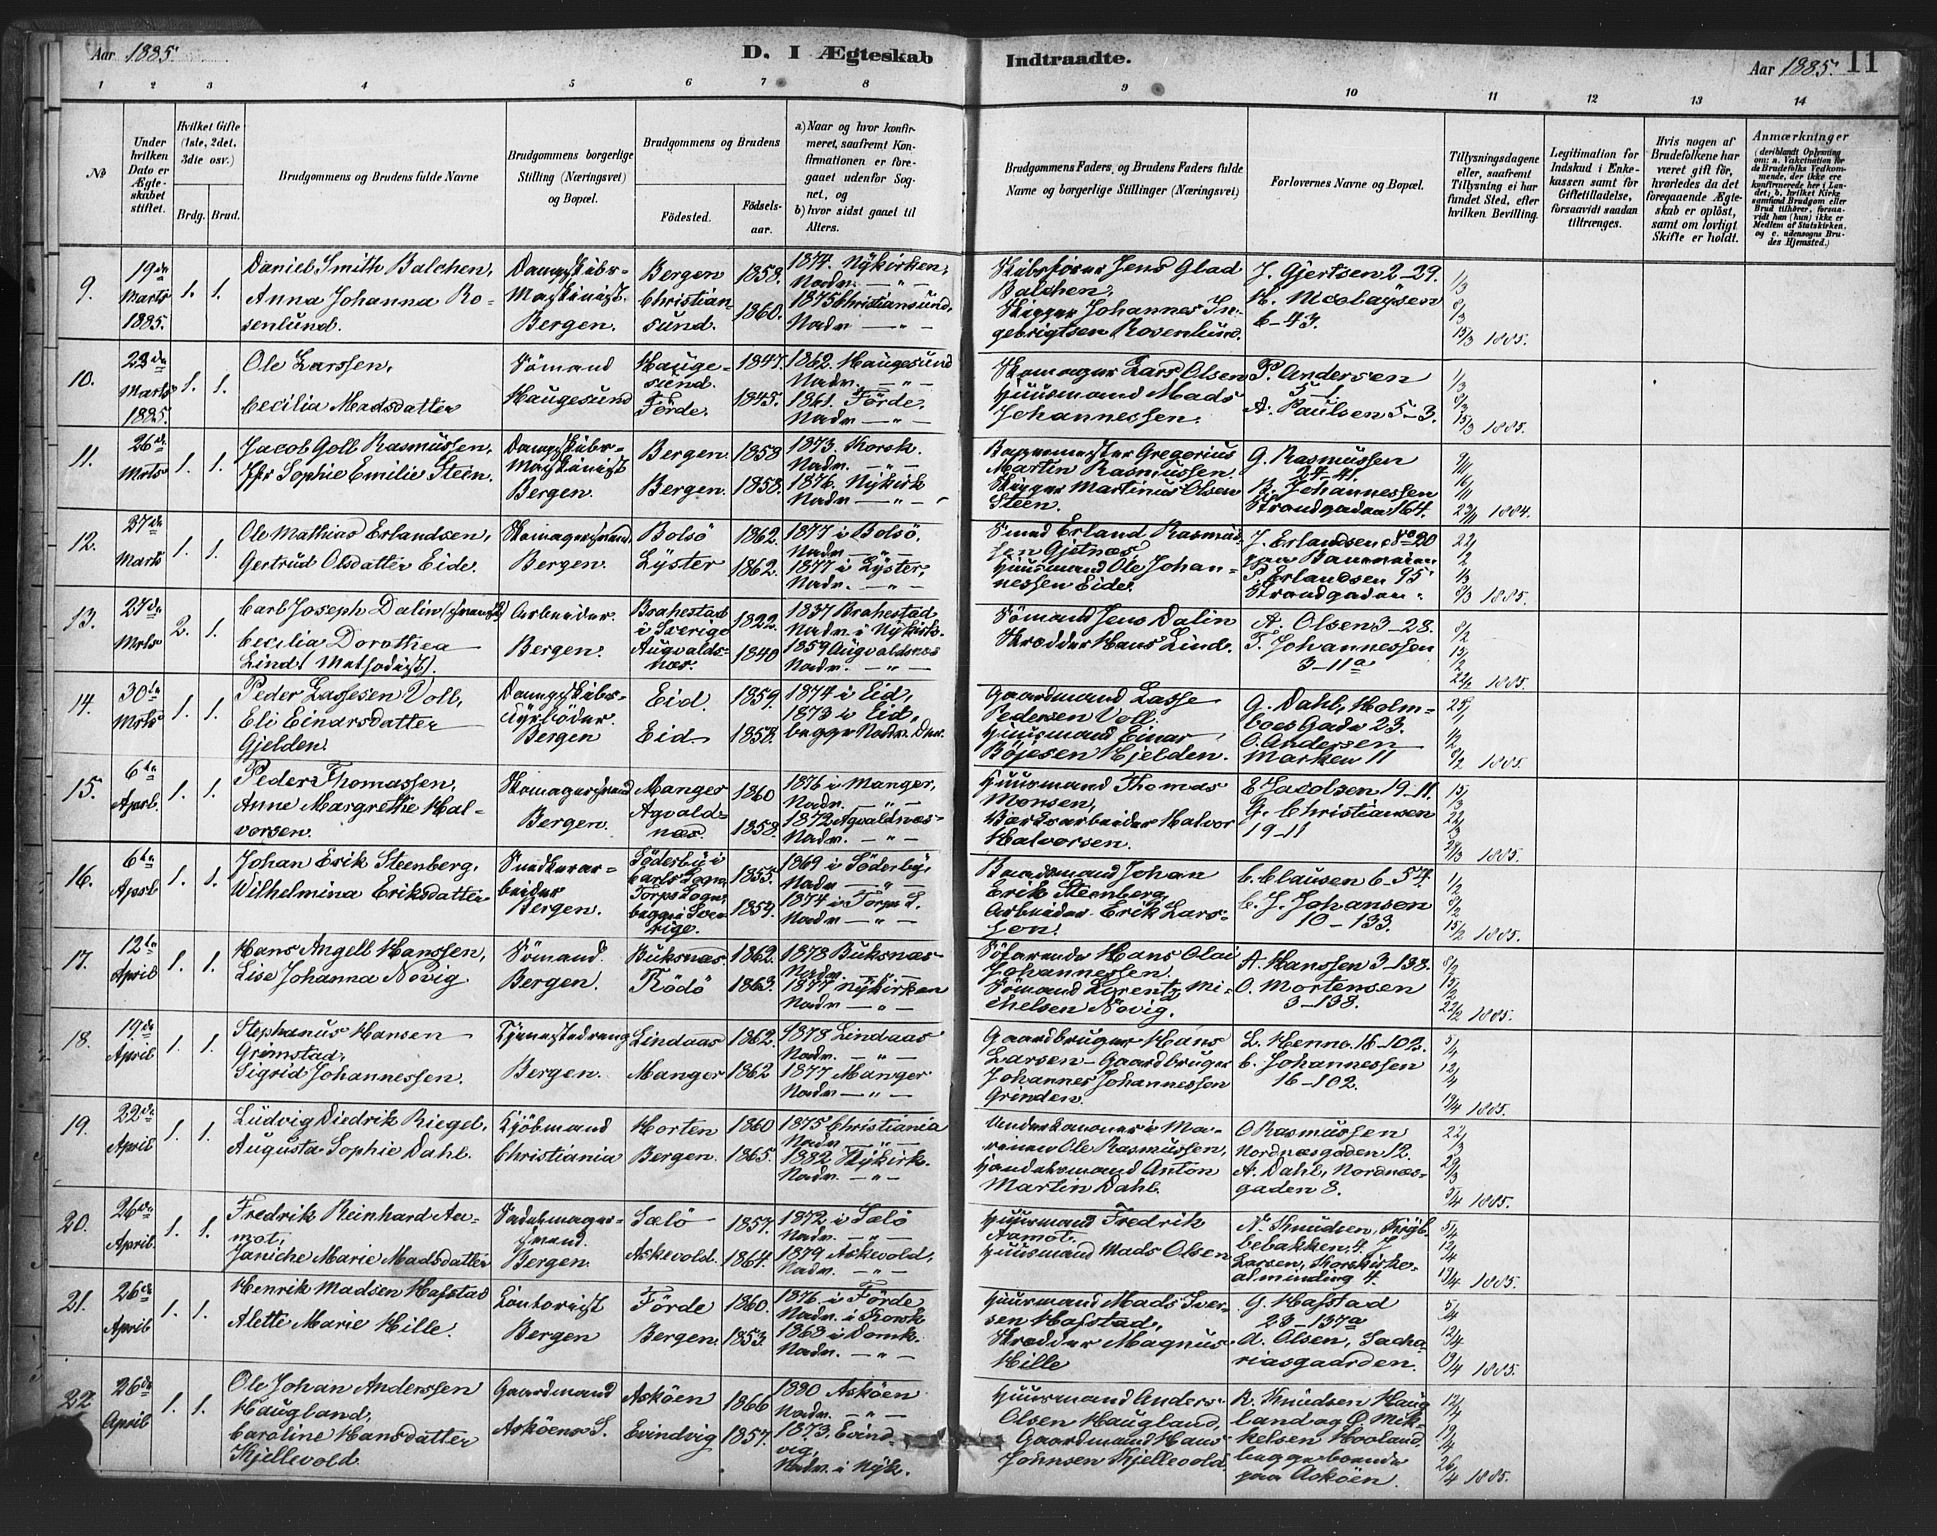 Aar 1885.
D. I Ægteskab Indtraadte.
Aar 1885. 11
1 2 3 4 5 6 7 8 9 10 11 12 13 14
No
Under hvilken Dato er Ægteskabet stiftet.
Hvilket Gifte (1ste, 2det, 3die osv.)
Brdg. Brud.
Brudgommens og Brudens fulde Navne
Brudgommens borgerlige Stilling (Næringsvei) og Bopæl.
Brudgommens og Brudens
Födested. Födselsaar.
a) Naar og hvor konfirmeret, saafremt Konfirmationen er foregaaet udenfor Sognet, og
b) hvor sidst gaaet til Alters.
Brudgommens Faders og Brudens Faders fulde Navne og borgerlige Stillinger (Næringsvei)
Forlovernes Navne og Bopæl.
Tillysningsdagene eller, saafremt Tillysning ei har fundet Sted, efter hvilken Bevilling.
Legitimation for Indskud i Enkekassen samt for Giftetilladelse, forsaavidt saadan tiltrænges.
Hvis nogen af Brudefolkene har været gift för, hvorledes da det foregaaende Ægteskab er oplöst, samt om lovligt Skifte er holdt.
Anmærkninger
(deriblandt Oplysning om: a. Vakcination for de Brudefolks Vedkommende, der ikke ere konfirmerede her i Landet; b. hvilket Kirkesamfund Brudgom eller Brud tilhörer, forsaavidt han (hun) ikke er Medlem af Statskirken, og c. udensogns Brudes Hjemsted.)
9. 19de Marts 1885. 1. 1.
Daniel Smith Balchen,
Anna Johanna Rosenlund.
Dampskibs-Maskinist. Bergen.
Bergen 1858.
Christiansund. 1860.
1874. Nykirken, Nadv. — " —
1875 Christiansund, Nadv — " —
Skibsförer Jens Glad Balchen,
Skipper Johannes Ingebrigtsen Rosenlund.
J. Gjertsen 2-29.
H. Nicolaysen 6-43.
1/3 8/3 15/3 1885.
10. 23de Marts 1885. 1. 1.
Ole Larssen,
Cecilia Madsdatter
Sömand Haugesund
Haugesund. 1847.
Förde. 1845.
1862. Haugesund Nadv. — " —
1861. Förde. Nadv — " —
Skomager Lars Olsen
Huusmand Mads Johannessen.
P. Andersen 5-1.
A. Paulsen 5-3.
1/3 8/3 15/3 1885.
11. 26de Mrts 1. 1.
Jacob Goll Rasmussen,
Jfr Sophie Emilie Steen.
Dampskibs-Maskinist Bergen.
Bergen. 1858
Bergen. 1858.
1873. Korsk. Nadv. — " —
1876. Nykirk Nadv — " —
Gregorius Martin Rasmussen.
Skipper Martinus Olsen Steen.
G. Rasmussen 24-41.
R. Johannessen Strandgaden 164.
9/11 16/11 23/11 1884.
12. 27de Marts 1. 1.
Ole Mathias Erlandsen,
Gertrud Olsdatter Eide.
Skomagersvend Bergen.
Bolsö 1862.
Lyster 1862.
1877 i Bolsö. Nadv. — " —
1877 i Lyster, Nadv. — " —
Smed Erland Rasmussen Gjetnæs
Huusmand Ole Johannessen Eide.
J. Erlandsen
P. Erlandsen 95 Strandgaden.
22/2 1/3 8/3 1885.
13. 27de Mrts 2. 1.
Carl Joseph Dalin
Cecilia Dorothea Lind (Methodist).
Arbeider. Bergen.
Brahestad i Sverige 1822.
Augvaldsnæs. 1840
1837 Brahestad. Nadv. i Nykirk.
1859 Augvaldsnæs Nadv. — " —
Sömand Jens Dalin
Skrædder Hans Lind.
A. Olsen 3-28.
T. Johannessen 3-11a
8/2 15/2 22/2 1885.
14. 30te Mrts 1. 1.
Peder Lassesen Voll,
Eli Einarsdatter Gjelden.
Dampskibs-Fyrböder. Bergen
Eid. 1859.
Eid. 1858.
1874 i Eid,
1873 i Eid, begge Nadv. Der.
Gaardmand Lasse Pedersen Voll.
Huusmand Einar Böjesen Hjelden.
G. Dahl, Holmboes Gade 23.
O. Andersen Marken 11
25/1 1/2 8/2 1885.
15. 6te April. 1. 1.
Peder Thomassen,
Anne Margrethe Halvorsen.
Skomagersvend Bergen.
Manger 1860
Agvaldnæs. 1858.
1876 i Manger, Nadv. — " —
1872 Agvaldnæs- Nadv. — " —
Huusmand Thomas Monsen,
Værksarbeider Halvor Halvorsen.
E. Jacobsen 19-11.
G. Christiansen 19-11
15/3 22/3 29/3 1885.
16. 6te April 1. 1.
Johan Erik Steenberg,
Wilhelmina Eriksdatter
Snedkerarbeider Bergen.
Söderby i Carls Sogn 1855.
Torps Sogn, begge i Sverige. 1859.
1869 i Söderby, Nadv — " —
1874 i Torps S. Nadv — " —
Baadsmand Johan Erik Steenberg
Arbeider Erik Larsson.
C. Clausen 6-54.
C. J. Johansen 10-133.
1/2 8/2 15/2 1885.
17. 12te April 1. 1.
Hans Angell Hanssen,
Lise Johanna Növig
Sömand. Bergen.
Buksnæs 1862.
Rödö 1863.
1878 Buksnæs- Nadv. — " —
1877 Nykirken Nadv. — " —
Söfarende Hans Olai Johannessen.
Sömand Lorentz Michelsen Növig.
A. Hanssen 3-138.
O. Mortensen 3-138.
8/2 15/2 22/2 1885.
18. 19de April 1. 1.
Stephanus Hansen Grimstad,
Sigrid Johannessen.
Tjenestedreng Bergen.
Lindaas 1862.
Manger 1862
1878 Lindaas Nadv. — " —
1877 Manger Nadv — " —
Gaardbruger Hans Larsen - Gaardbruger Johannes Johannessen Grinden.
L. Henne. 16-102.
C. Johannessen 16-102.
5/4 12/4 19/4 1885.
19. 22de April 1. 1.
Ludvig Diedrik Riegel,
Augusta Sophie Dahl.
Kjöbmand Christiania
Horten 1860
Bergen. 1865.
1875 Christiania Nadv — " —
1882 Nykirk. Nadv. — " —
Underkanoner i Marinen Ole Rasmussen,
Handelsmand Anton Martin Dahl.
O Rasmussen Nordnæsgaden 12.
A. Dahl, Nordnæsgaden 8.
22/3 29/3 5/4 1885.
20. 26de April. 1. 1.
Fredrik Reinhard Aamot,
Janiche Marie Madsdatter
Sadelmagersvend. Bergen.
Selö 1857.
Askevold. 1864.
1872 i Selö Nadv. — " —
1879 Askevold, Nadv. — " —
Huusmand Fredrik Aamot.
Huusmand Mads Olsen
N. Knudsen, 4.
J Larsen, Korskirkealmending 4.
5/4 12/4 19/4 1885.
21. 26de April 1. 1.
Henrik Madsen Hafstad
Alette Marie Hille.
Kontorist Bergen
Förde 1860.
Bergen. 1853.
1876 i Förde Nadv. i Korsk
1868 i Domk. Nadv. — " —
Huusmand Mads Iversen Hafstad,
Skrædder Magnus Hille
G. Hafstad 23-137a
A. Olsen, Sachariasgaarden.
5/4 12/4 19/4 1885.
22 26de April 1. 1.
Ole Johan Anderssen Haugland,
Caroline Hansdatter Kjellevold.
Gaardmand Asköens S.
Asköen 1866
Evindvig 1857.
1880 Asköen Nadv. — " —
1873. Evindvig, Nadv. i Nyk.
Huusmand Anders Olsen Haugland,
Gaardmand Hans Johnsen Kjellevold.
R. Knudsen Haugland og Ø. Mikkelsen Hooland. begge boende paa Asköen.
12/4 19/4 26/4 1885.